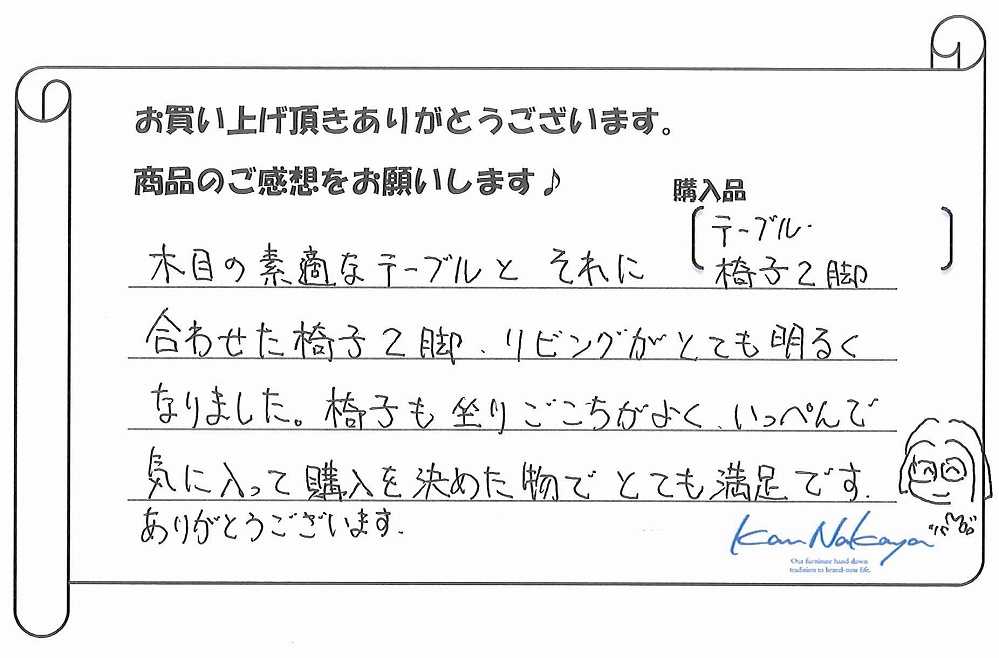 お買い上げ頂きありがとうございます。
商品のご感想をお願いします♪
購入品
テーブル・
椅子2脚
木目の素適なテーブルと それに
合わせた椅子2脚、リビングがとても明るく
なりました。椅子も坐りごこちがよく、いっぺんで
気に入って購入を決めた物でとても満足です.
ありがとうございます.
Kan Nakaya
Our furniture hand down
tradition to brand-new life.